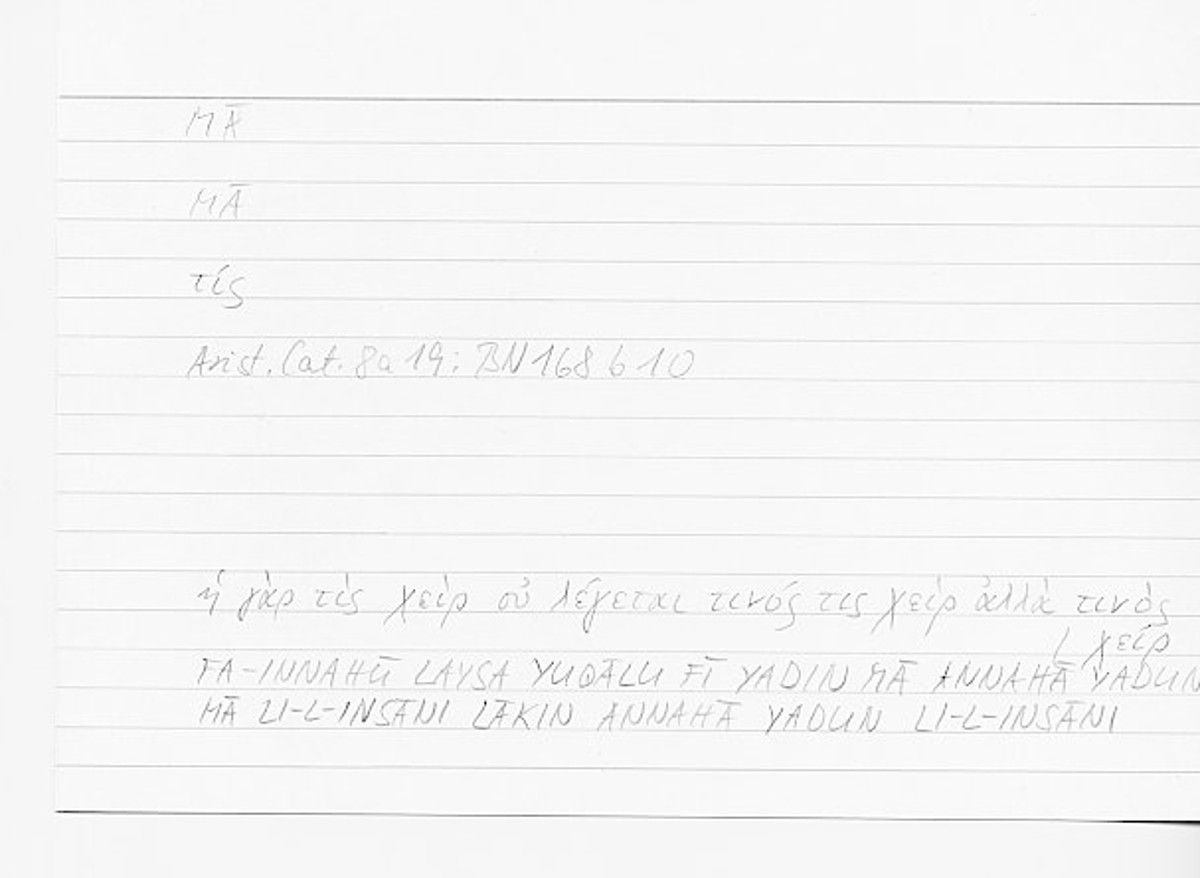 MĀ
MĀ
τίς
Arist. Cat. 8a19; BN168b10
ἡ γὰρ τὶς χεὶρ οὐ λέγεται τινός τις χεὶρ ἀλλὰ τινὸς
/ χείρ
FA-INNAHŪ LAYSA YUQĀLU FĪ YADIN MĀ ANNAHĀ YADUN
MĀ LI-L-INSĀNI LĀKIN ANNAHĀ YADUN LI-L-INSĀNI